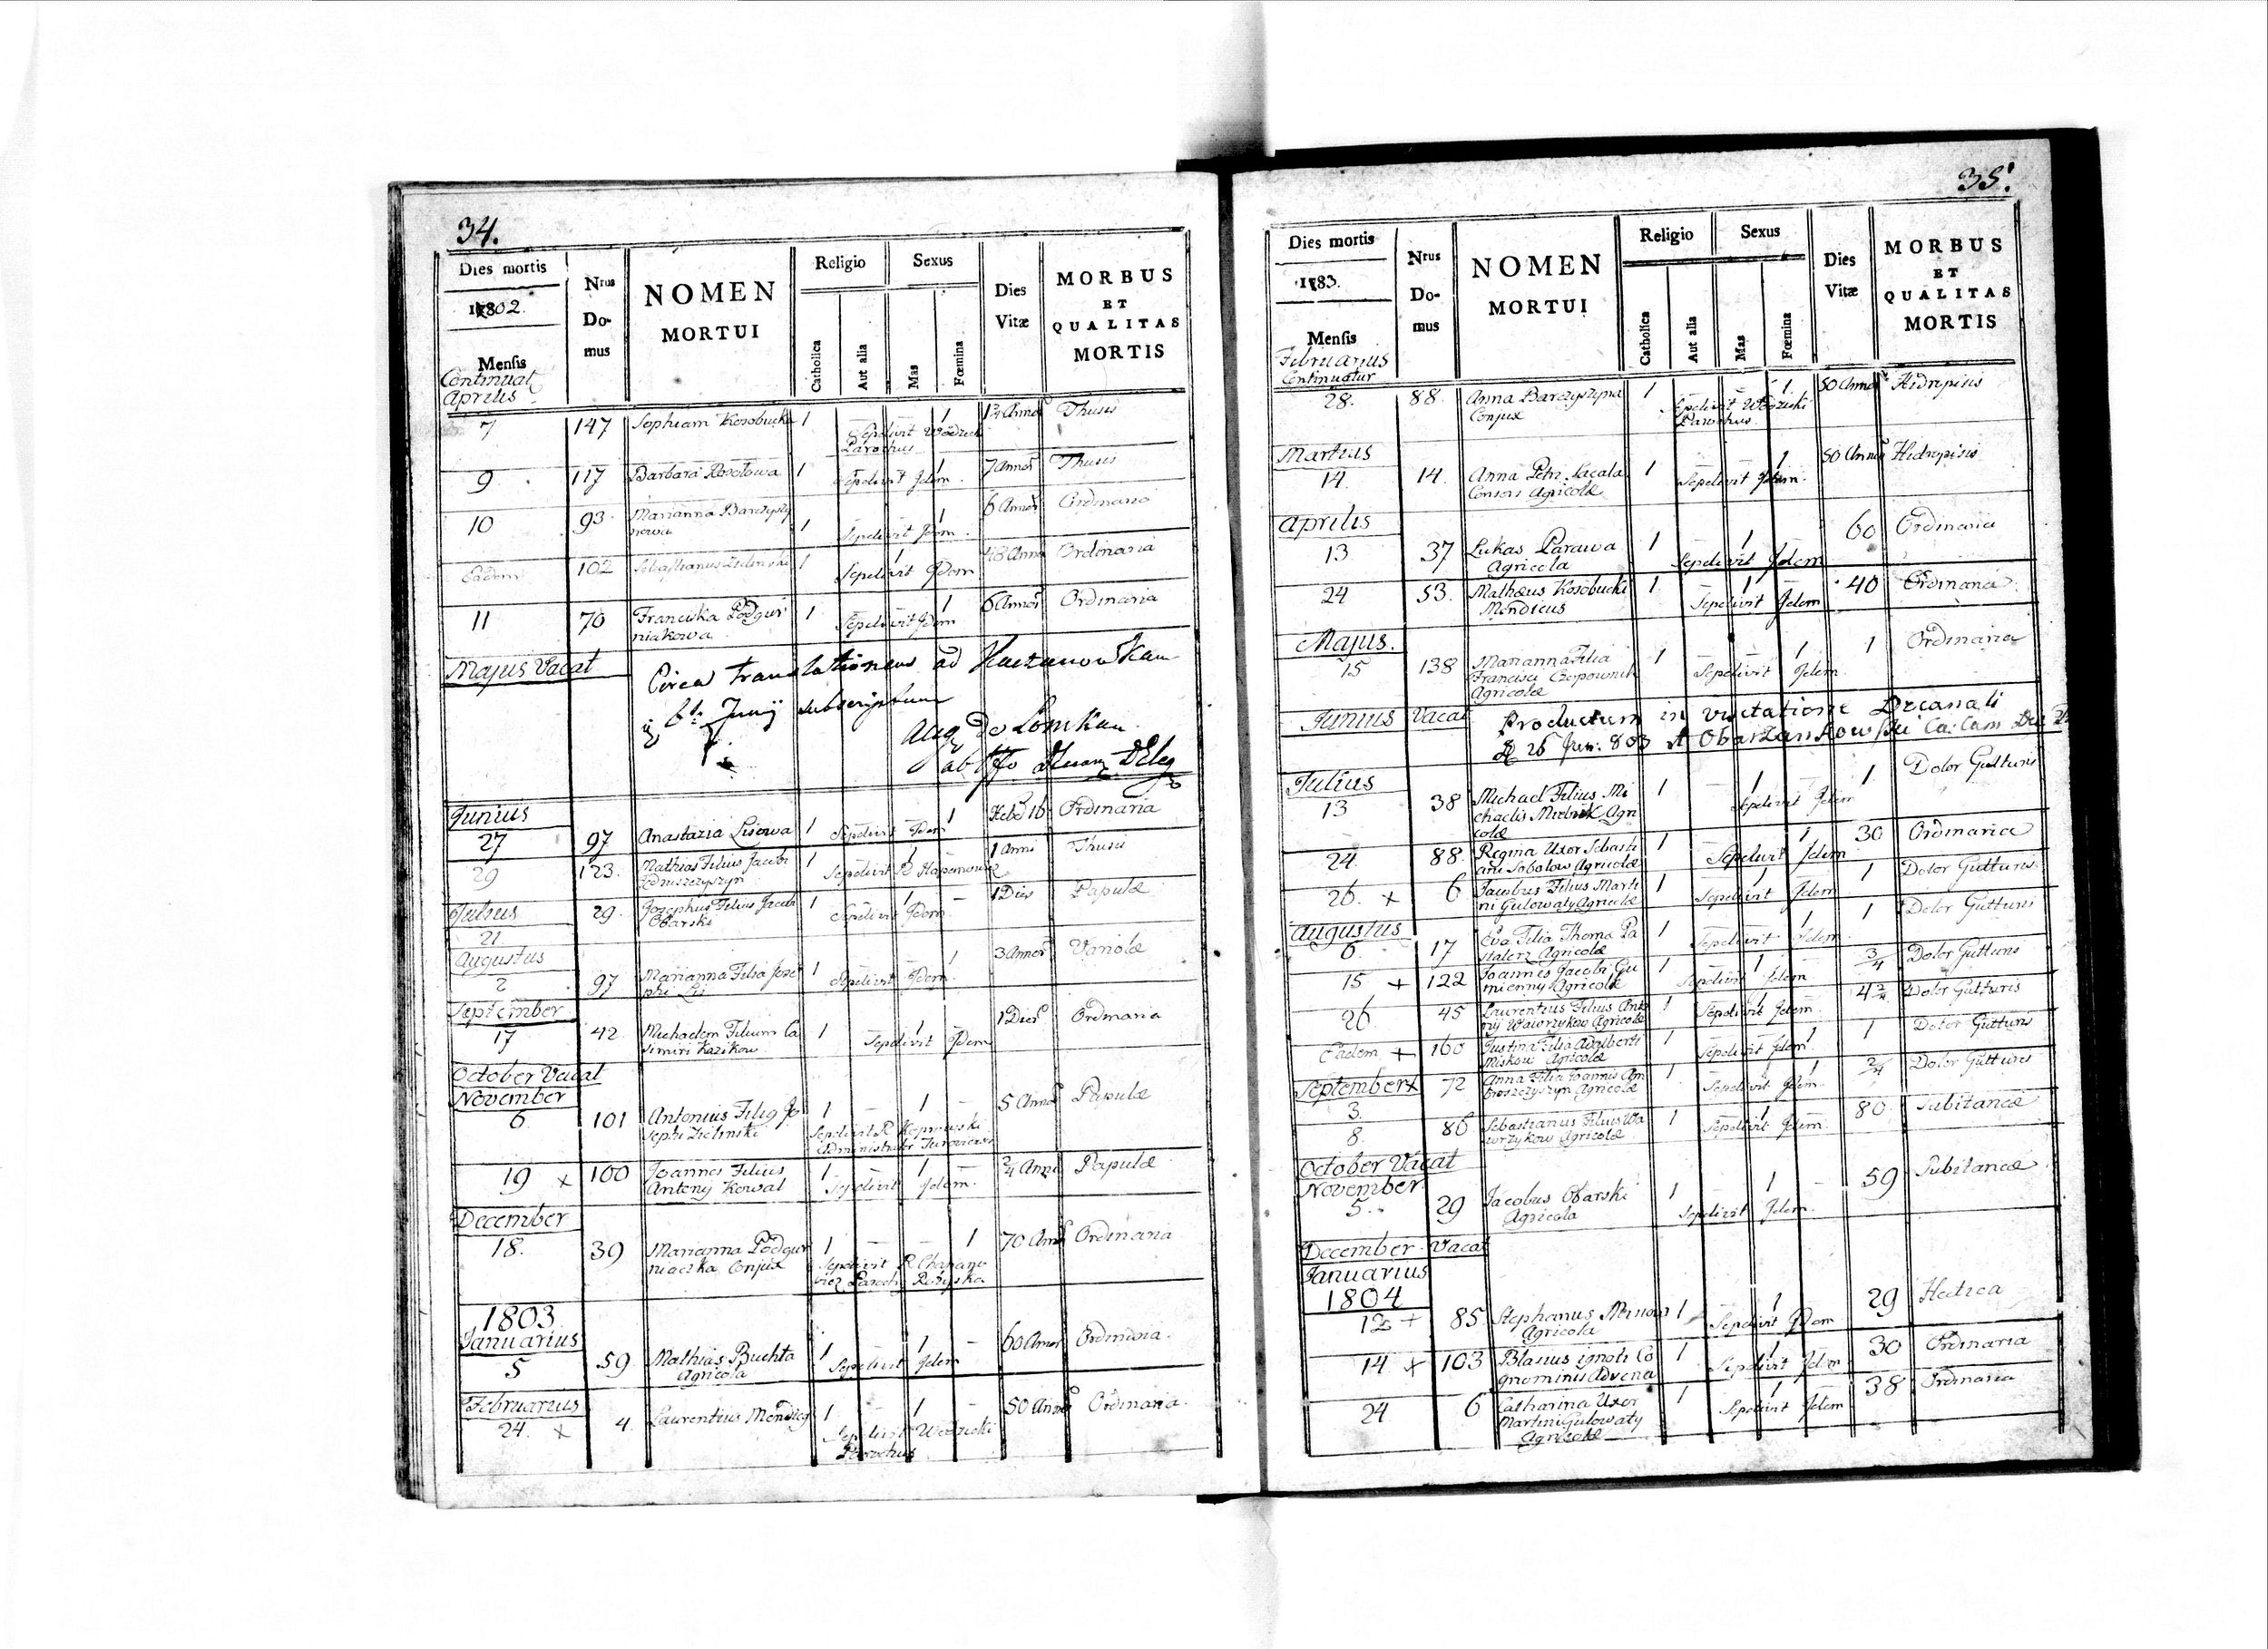 34.
Dies mortis
1802.
Mensis
Nrus
Do-
mus
NOMEN
MORTUI
Religio
Catholica
Aut alia
Sexus
Mas
Fœmina
Dies
Vitæ
MORBUS
ET
QUALITAS
MORTIS
Continuat
Aprilis
7 147 Sophiam Kosobucka 1 1 Thusis
Sepelivit Wodzicki
Parochus
9 117 Barbara 1 1 7 Annor Thusis
Sepelivit Idem
10 93 Marianna Barczysty
nowa 1 1 6 Annor Ordinaria
Sepelivit Idem
Eadem 102 Sebasthanus Zielinski 1 1 48 Anno Ordinaria
Sepelivit Idem
11 70 Franciska Podgur
niakowa 1 1 6 Annor Ordinaria
Sepelivit Idem
Majus Vacat
Circa translationem ad
Junij subscriptum
Junius
27 97 Anastazia Lisowa 1 1 Hebd 16 Ordinaria
Sepelivit Idem
29 123. Mathias Filius Jacobi
1 1 1 Anni Thusis
Sepelivit R
Julius
21 29. Josephus Filius Jacobi
Obarski 1 1 – 1 Dies Papulæ
Sepelivit Idem
Augustus
2 97 Marianna Filia Jose
phi Lis 1 1 3 Annor Variolæ
Sepelivit Idem
September
17 42 Michaelem Filium Ca
simiri Kazikow 1 1 – 1 Dier Ordinaria
Sepelivit Idem
October Vacat
November
6 101 Antonius Filig Jo
sephi Zielinski 1 – 1 – 5 Anno Papulæ
Sepelivit R
Administrator
19 x 100 Joannes Filius
Antonij Kowal 1 – 1 – 3/4 Anni Papulæ
Sepelivit Idem.
December
18. 39 Marianna Podgur
niaczka Conjux 1 – – 1 70 Ann Ordinaria
Sepelivit R
Paroch
1803
Januarius
5 59 Mathias Buchta
Agricola 1 1 – 60 Annor Ordinaria.
Sepelivit Idem
Februarius
24. x 4. Laurentius Mendicg 1 – 1 – 50 Annor Ordinaria.
Sepelivit Wodzicki
Parochus
35.
Dies mortis
1783.
Mensis
Nrus
Do-
mus
NOMEN
MORTUI
Religio
Catholica
Aut alia
Sexus
Mas
Fœmina
Dies
Vitæ
MORBUS
ET
QUALITAS
MORTIS
Februarius
Continuatur
28. 88. Anna Barczyszyna
Conjux 1 – – 1 50 Annor Hidropisis
Sepelivit Wodzicki
Parochus
Martius
14. 14. Anna Petri Sacala
Consors Agricolæ 1 – – 1 50 Annor Hidropisis
Sepelivit Idem.
Aprilis
13 37 Lukas Parawa
Agricola 1 – 1 – 60 Ordinaria
Sepelivit Idem
24 53. Mathæus Kosobucki
Mendicus 1 – 1 – 40 Ordinaria
Sepelivit Idem
Majus.
15 138 Marianna Filia
Francisci
Agricolæ 1 – – 1 1 Ordinaria
Sepelivit Idem
Junius Vacat
Productum in visitatione Decanali
26 Jun: 803
Julius
13 38 Michael Filius Mi
chaelis Mielnik Agri
colæ 1 – 1 1. Dolor Gutturis
Sepelivit Idem
24. 88. Regina Uxor Sebasti
ani Sobolow Agricolæ 1 1 30 Ordinaria
Sepelivit Idem
26. x 6 Jacobus Filius Marti
ni Gulowaty Agricolæ 1 1 1 Dolor Gutturis
Sepelivit Idem
Augustus
6. 17 Eva Filia Thoma Pa
stalerz Agricolæ 1 1 1 Dolor Gutturis
Sepelivit Idem
15 + 122 Joannes Jacobi Gu
mienny Agricolæ 1 1 3/4 Dolor Gutturis
Sepelivit Idem
26 45 Laurentius Filius Anto
nij Wawrzykow Agricolæ 1 1 Dolor Gutturis
Sepelivit Idem
Eadem + 160 Justina Filia Adalberti
Miskow Agricolæ 1 1 1 Dolor Gutturis
Sepelivit Idem
September x
3. 72 Anna Filia Joannis Am
broszczyszyn Agricolæ 1 1 Dolor Gutturis
Sepelivit Idem
8. 86 Sebastianus Filius Wa
wrzykow Agricolæ 1 1 80 Subitanea
Sepelivit Idem
October Vacat
November
5. 29 Jacobus Obarski
Agricola 1 – 1 – 59 Subitanea
Sepelivit Idem
December Vacat
Januarius
1804
12 + 85 Stephanus
Agricola 1 – 1 29 Hectica
Sepelivit Idem
14 x 103 Blasius ignoti Co
gnominis Advena 1 1 30 Ordinaria
Sepelivit Idem
24 6 Catharina Uxor
Martini Gulowaty
Agricolæ 1 1 38 Ordinaria
Sepelivit Idem